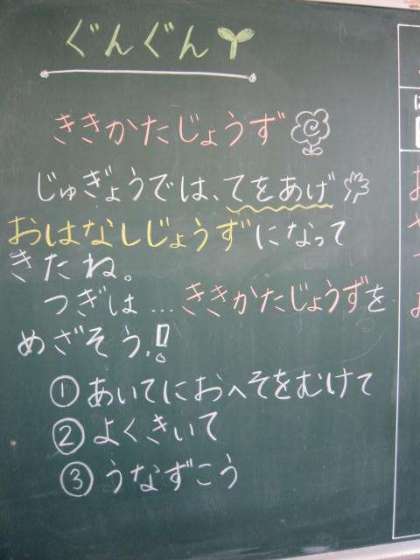 ぐんぐん
ききかたじょうず
じゅぎょうでは、てをあげ
おはなしじょうずになって
きたね。
つぎは…ききかたじょうずを
めざそう!
①あいてにおへそをむけて
②よくきいて
③うなずこう